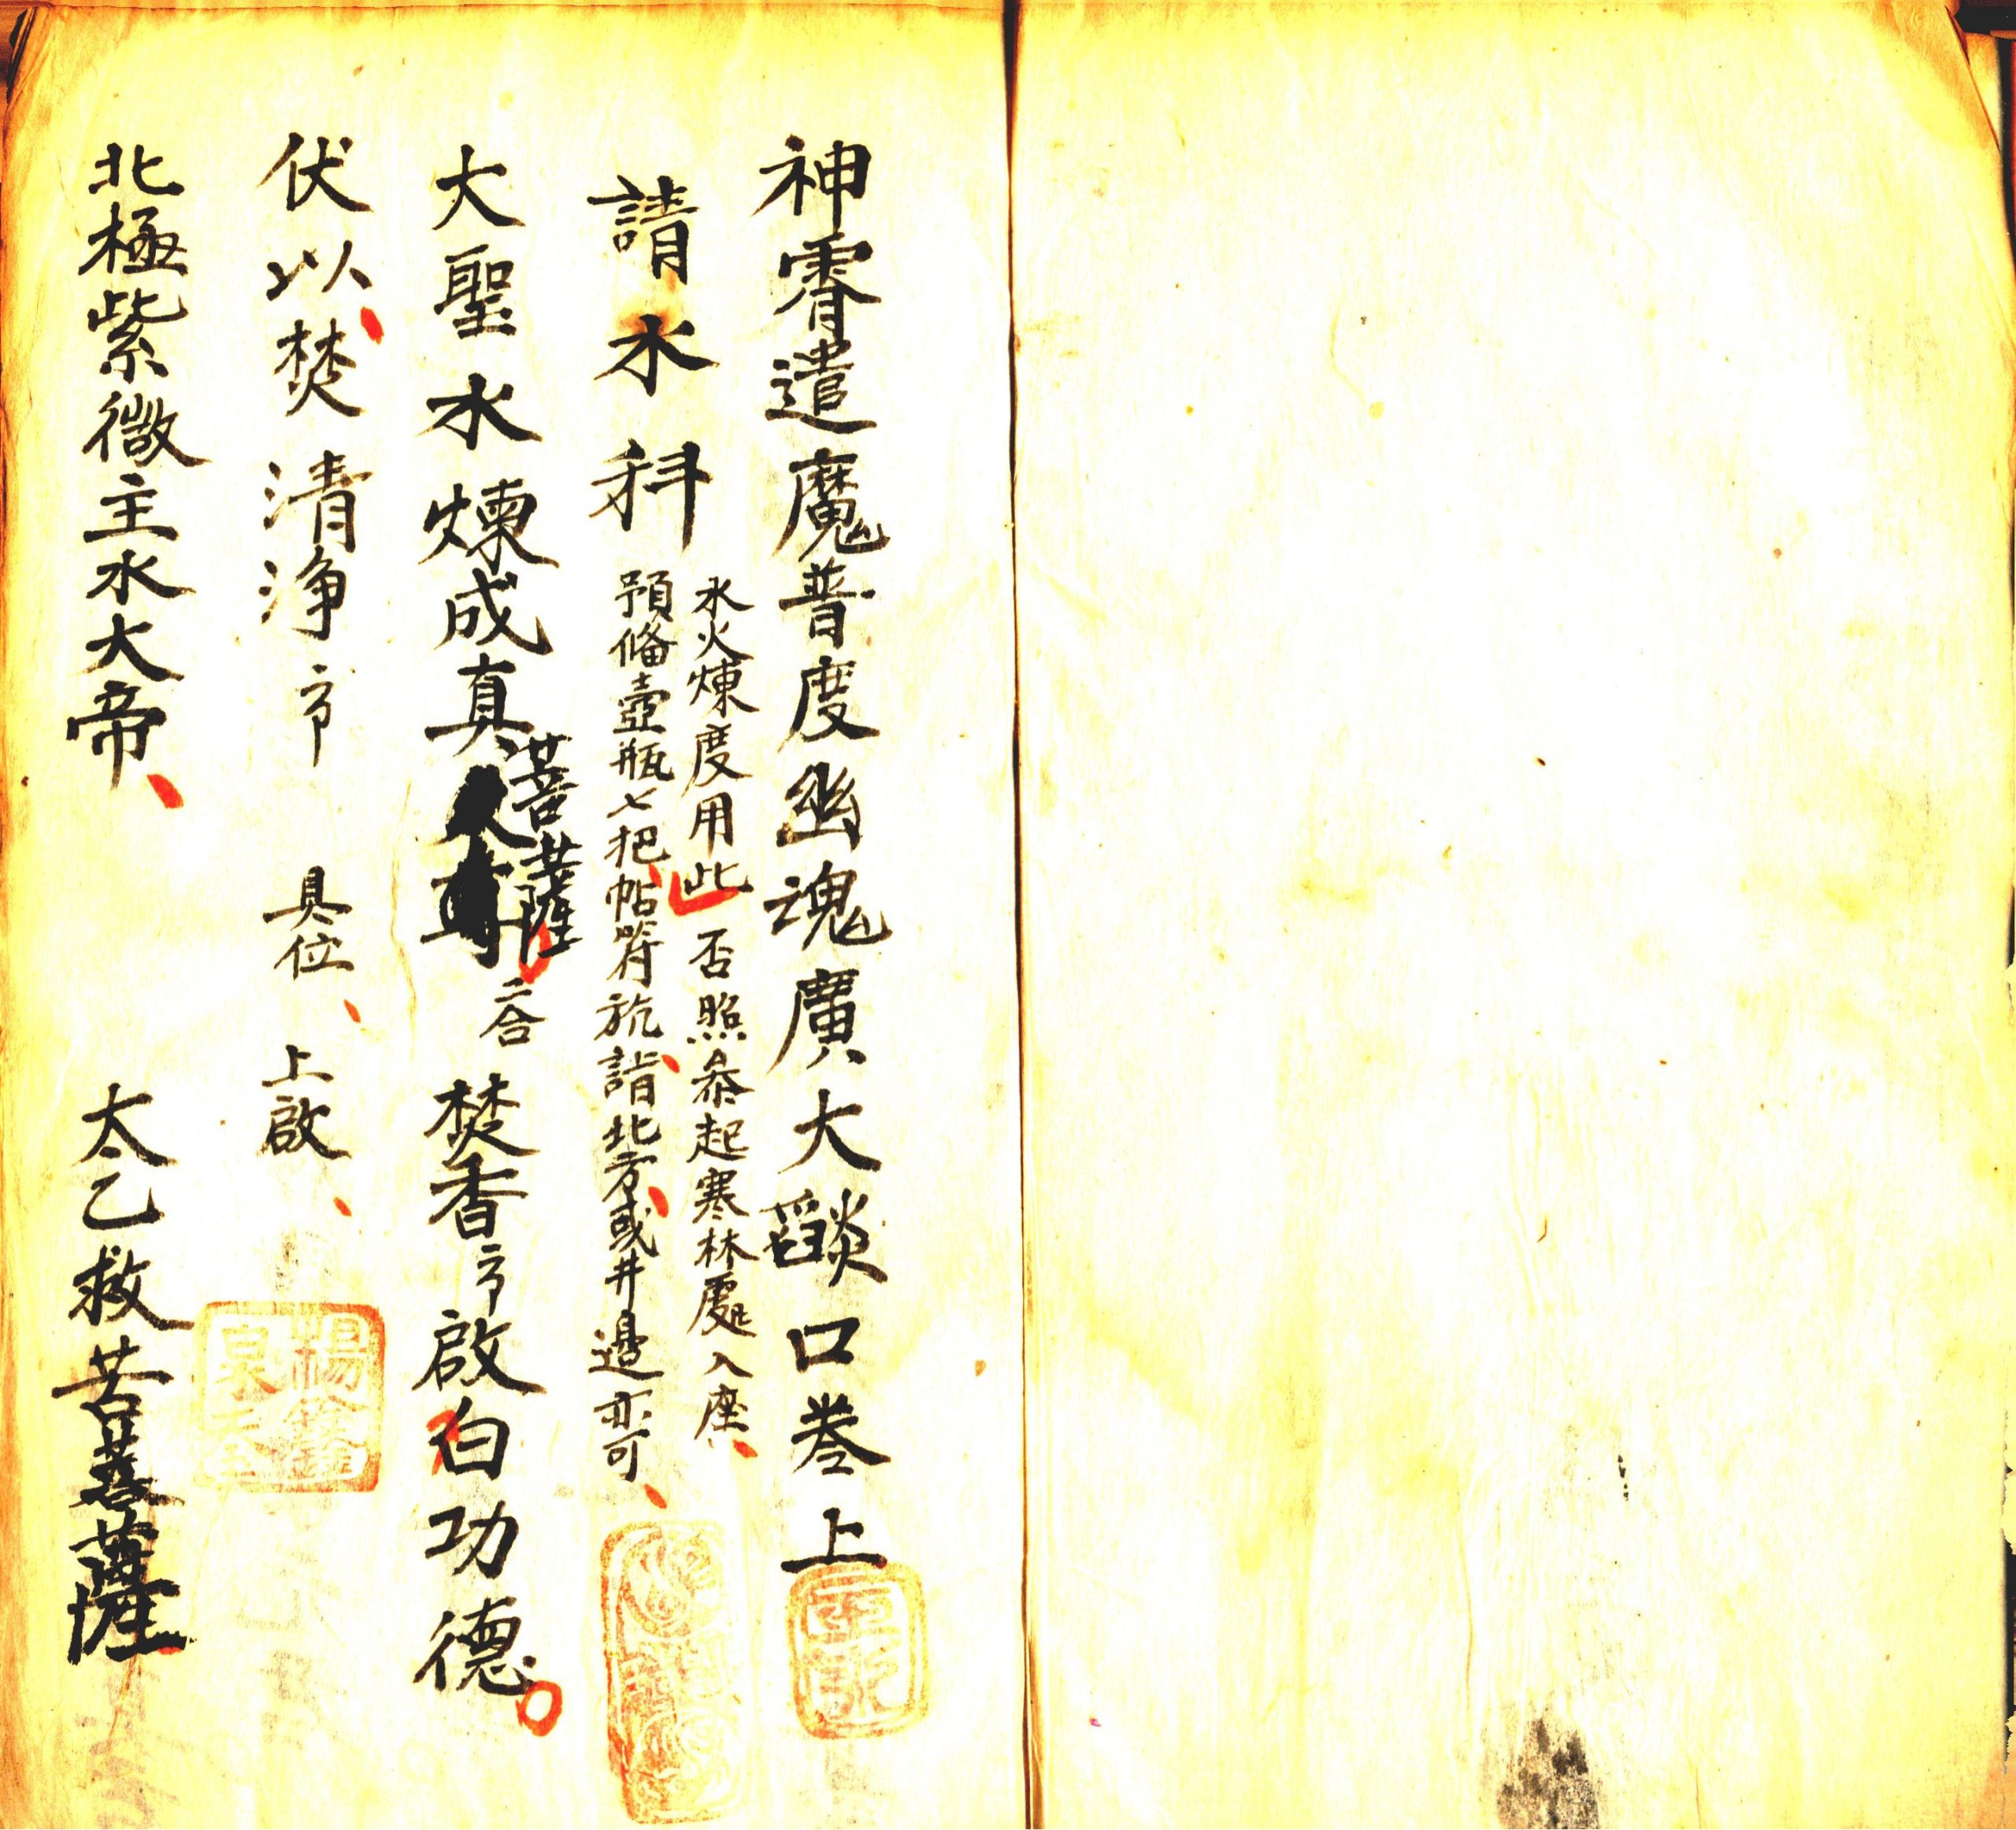 神霄遣魔普度幽魂廣大燄口卷上
請水科
水火煉度用此 否照叅起寒林處入座
預俻壺瓶七把帖符旂詣北方或井邊亦可
大聖水煉成真菩薩 二合 焚香啟白功德
伏以焚清淨 具位 上啟
北極紫微主水大帝 太乙救苦菩薩